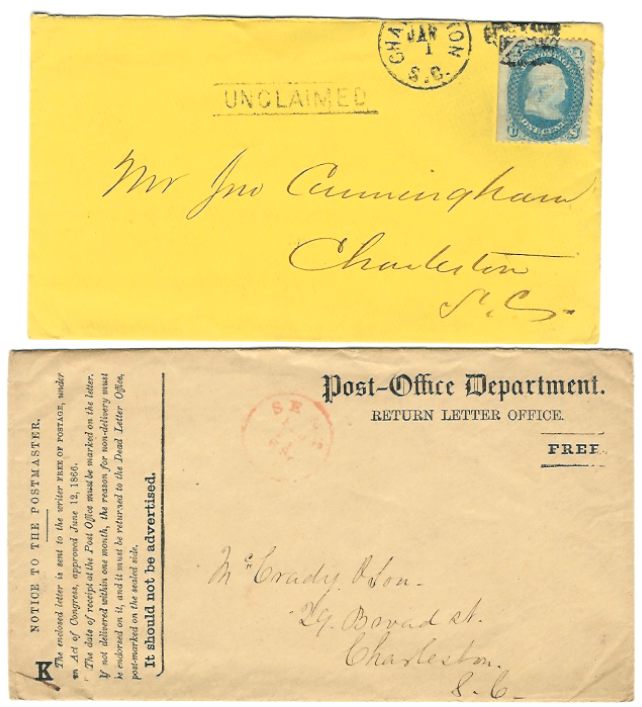 CHA ON
JAN
1
S.C.
UNCLAIMED
Mr Jno Cunningham
Charleston
S. C.
Post-Office Department.
RETURN LETTER OFFICE.
FREE
Mc Crady & Son
Broad st.
Charleston
S. C.
NOTICE TO THE POSTMASTER.
The enclosed letter is sent to the writer FREE OF POSTAGE, under
an Act of Congress, approved June 12, 1866.
The date of receipt at the Post Office must be marked on the letter.
If not delivered within one month, the reason for non-delivery must
be endorsed on it, and it must be returned to the Dead Letter Office,
post-marked on the sealed side.
It should not be advertised.
K